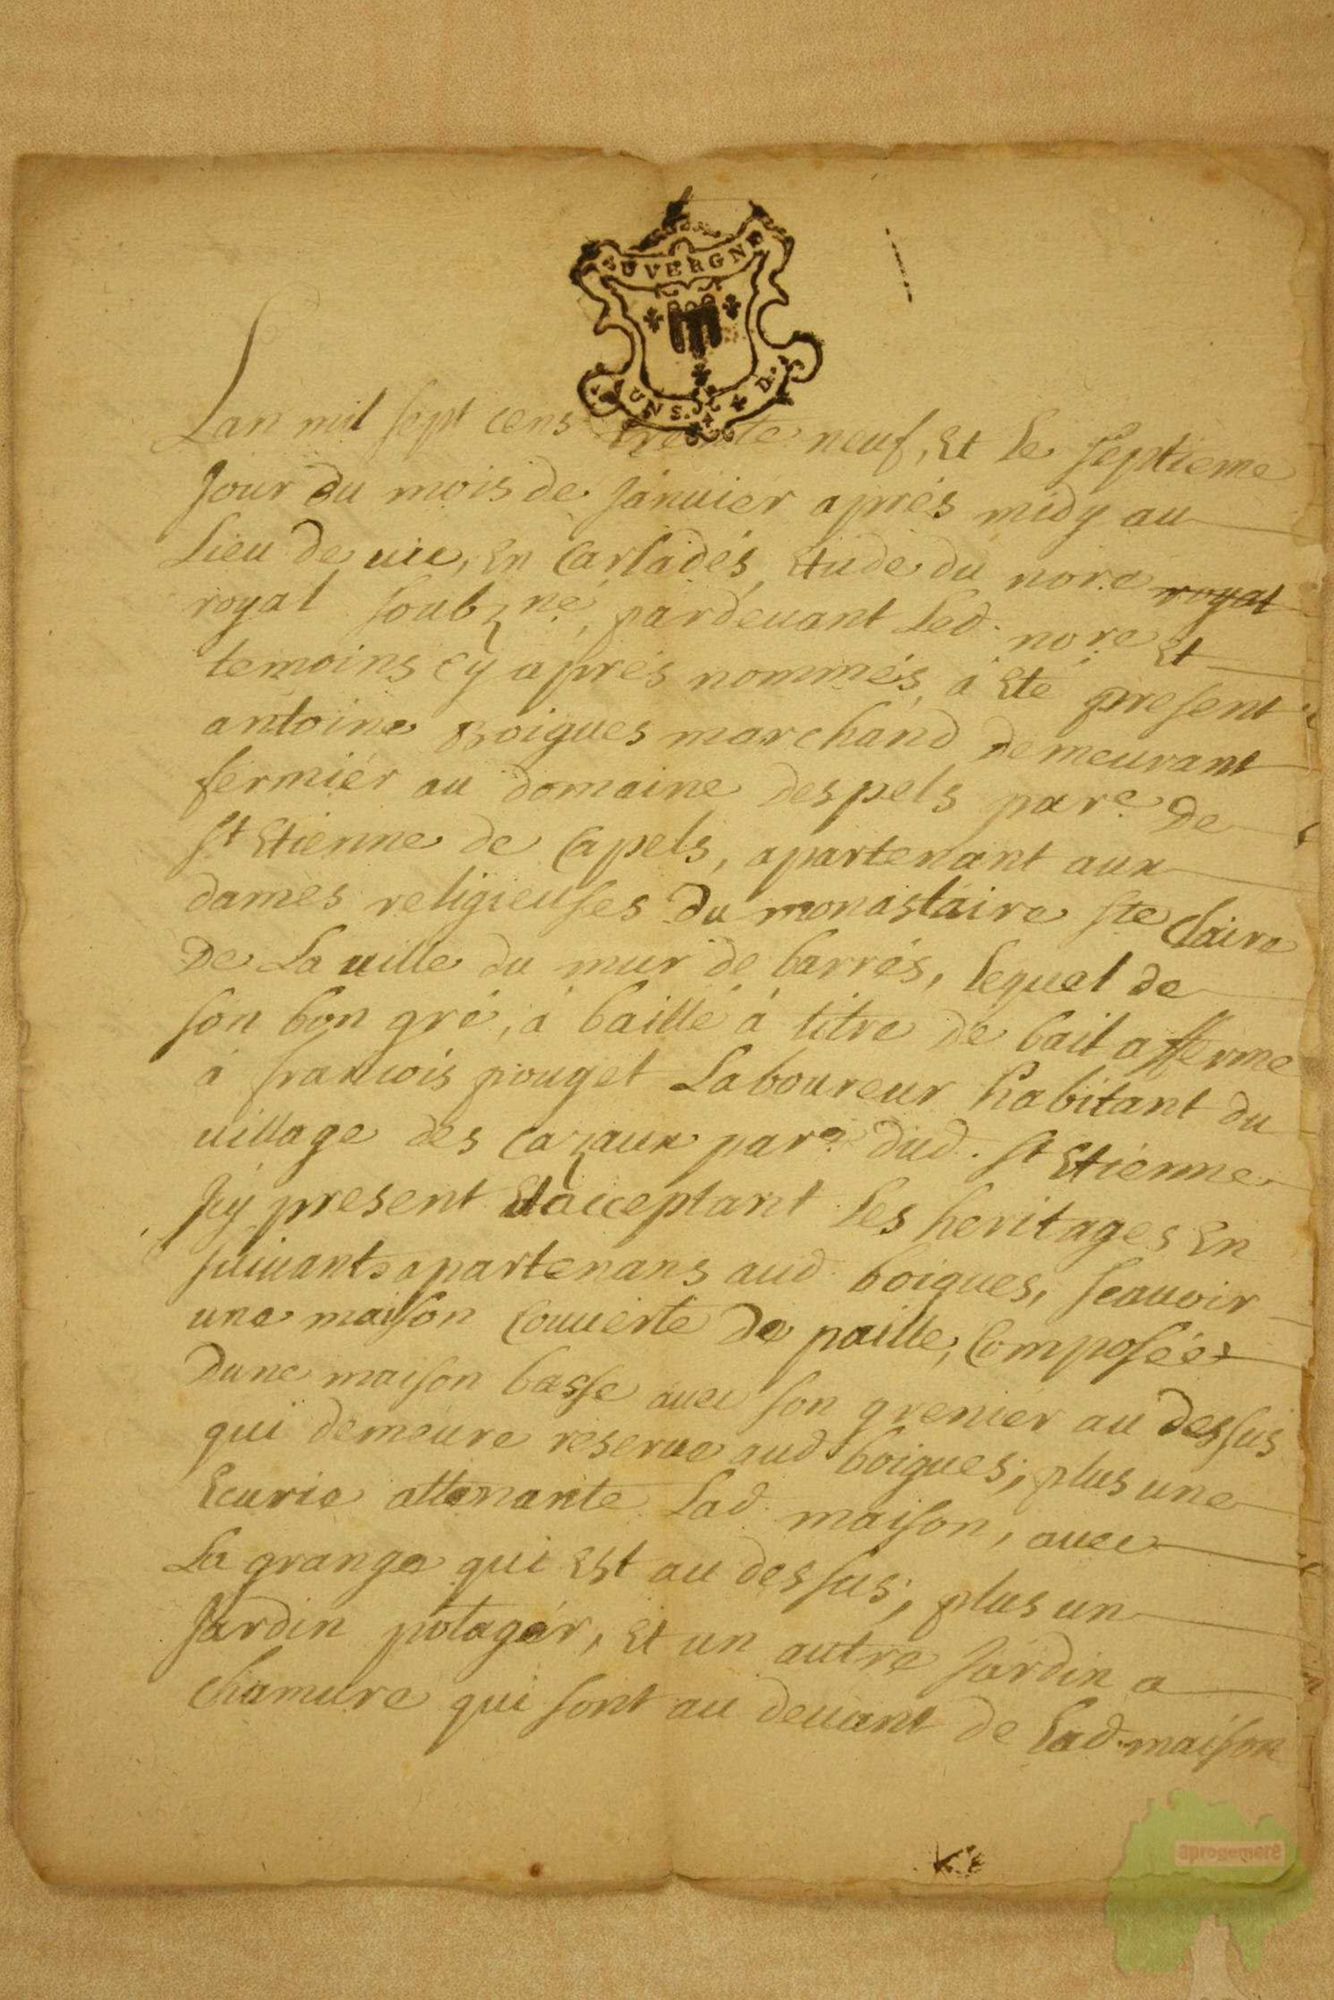 AUVERGNE
UN S. 4 D.
Lan mil sept cens trente neuf, Et le septieme
Jour du mois de Janvier aprés midy au
Lieu de uic, En Carladés, Etude du nore royal
royal soubz.né, pardeuant Led. nore Et
temoins cy aprés nommés, à Eté present
antoine Boigues marchand demeurant
fermier au domaine despels par.e de
st Etienne de Capels, apartenant aux
dames religieuses du monastaire ste Claire
De La uille du mur de barrés, lequel de
son bon gré, à baillé à titre de bail afferme
à francois pouget Laboureur habitant du
uillage des Cazaux par.e dud. st Etienne
Jcy present Et acceptant les heritages En
suiuants apartenans aud boigues, scauoir
une maison Couuerte de paille, Composée
Dune maison basse auec son grenier au dessus
qui demeure reserue aud boigues; plus une
Ecurie attenante Lad. maison, auec
La grange qui Est au dessus; plus un
Jardin potager, Et un autre Jardin a
Chamure qui sont au deuant de Lad. maison
aprogemere